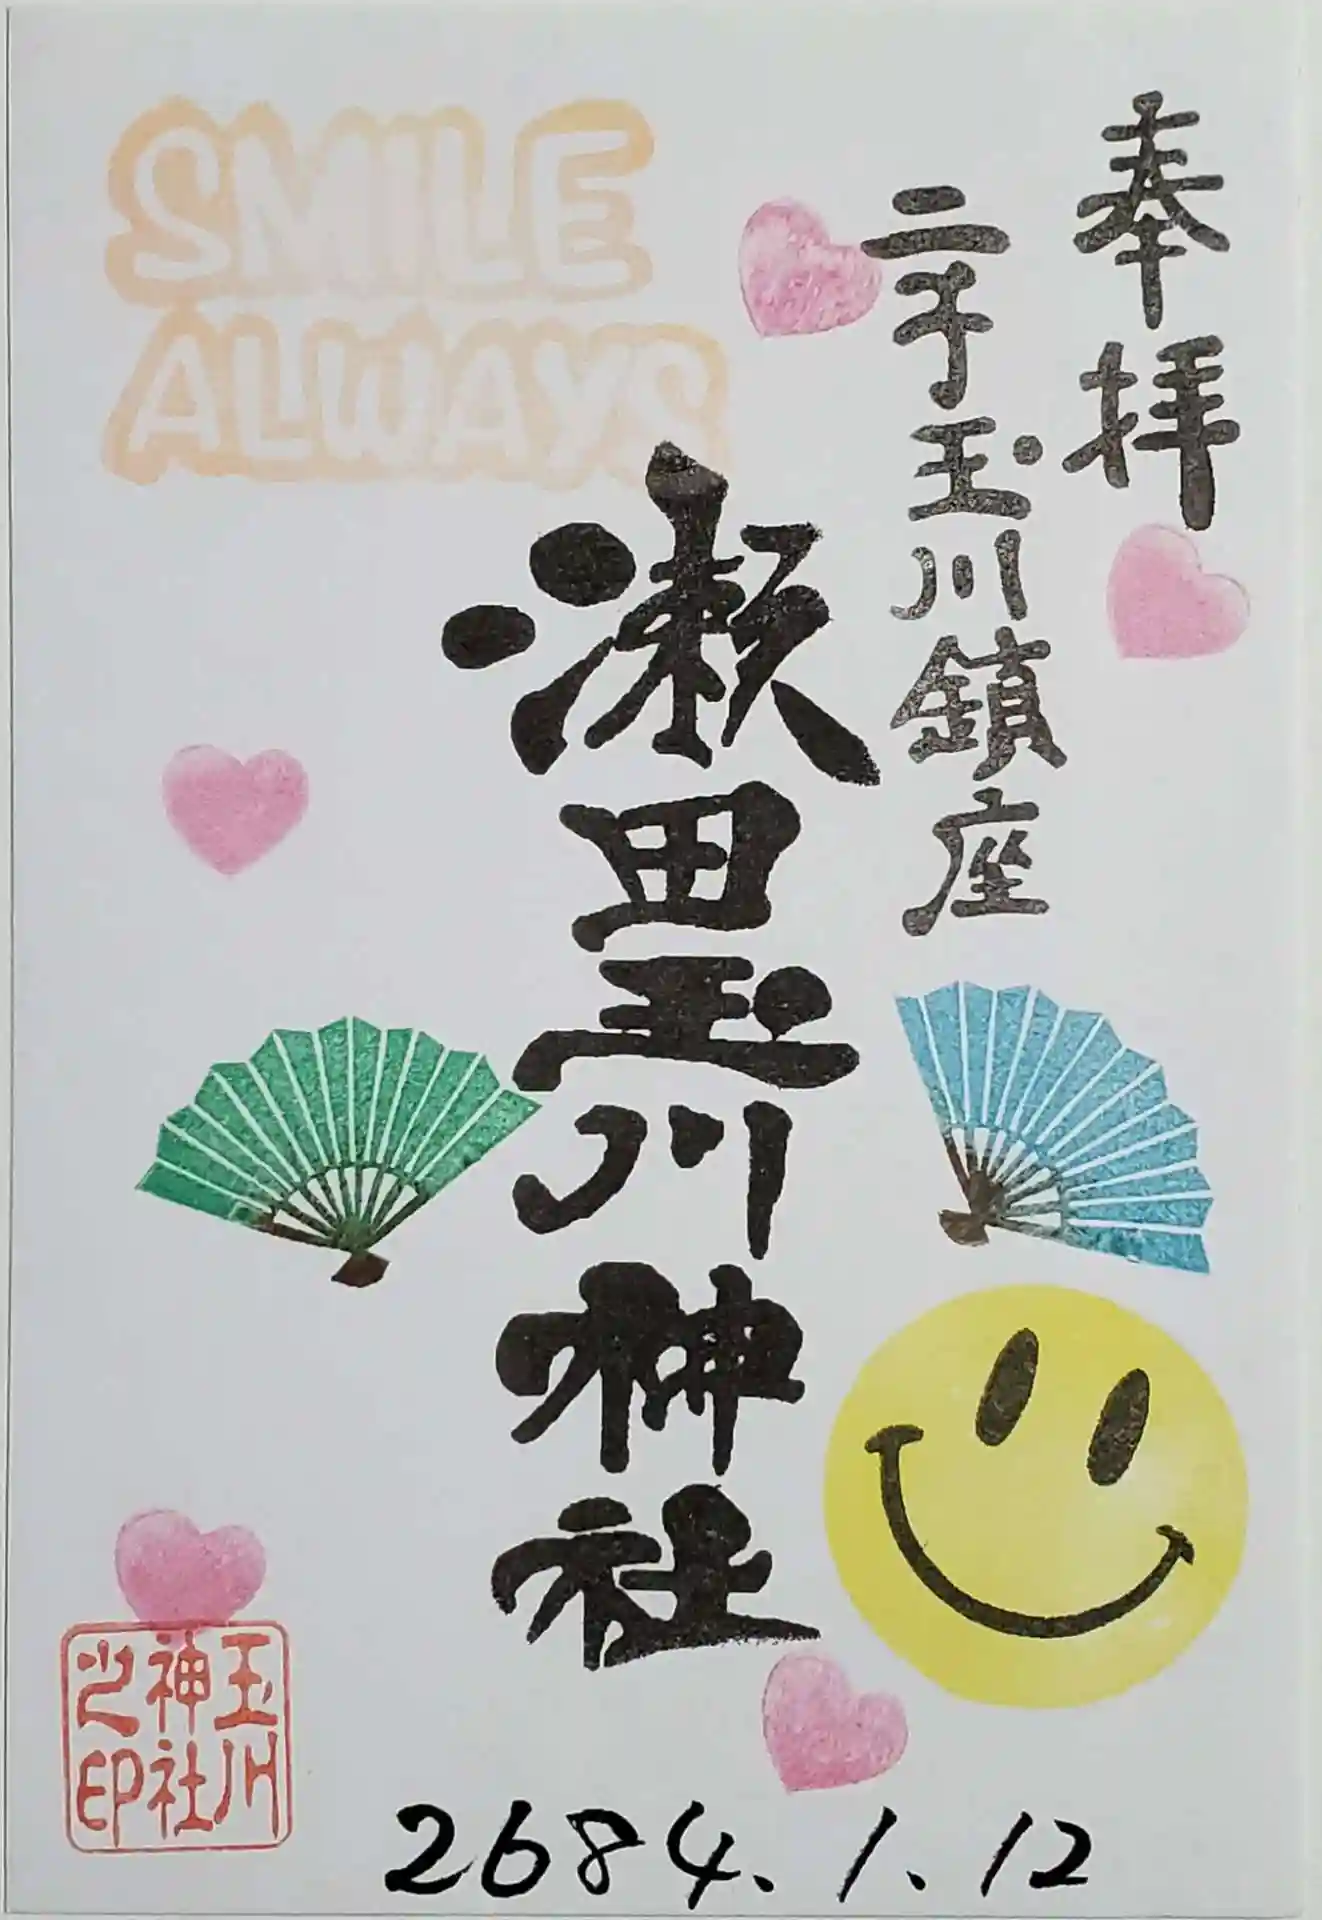 奉拝
二子玉川鎮座
瀬田玉川神社
SMILE
ALWAYS
玉川
神社
之印
2684.1.12